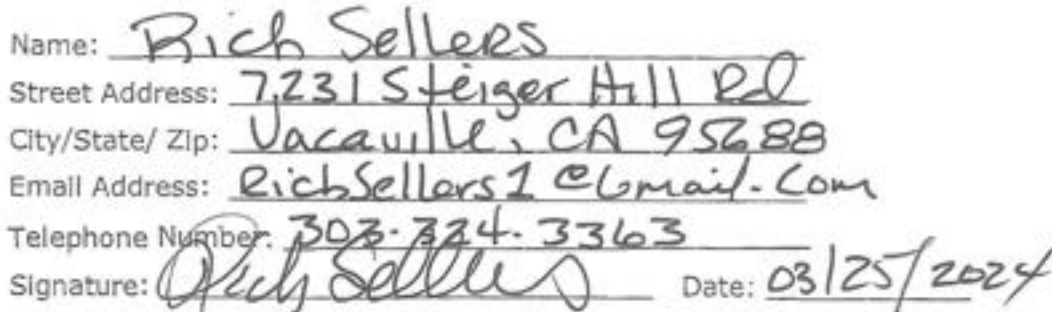 Name: Rich Sellers
Street Address: 7231 Steiger Hill Rd
City/State/ Zip: Vacaville, CA 95688
Email Address: RichSellers1@Gmail.com
Telephone Number: 303-324-3363
Signature: Rich Sellers Date: 03/25/2024